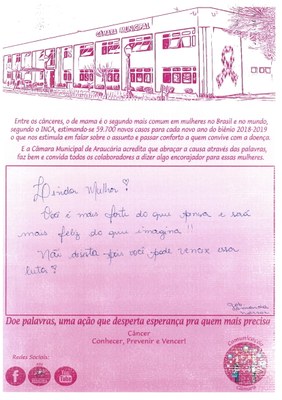 CÂMARA MUNICIPAL
Entre os cânceres, o de mama é o segundo mais comum em mulheres no Brasil e no mundo,
segundo o INCA, estimando-se 59.700 novos casos para cada novo ano do biênio 2018-2019
o que nos estimula em falar sobre o assunto e passar conforto a quem convive com a doença.
E a Câmara Municipal de Araucária acredita que abraçar a causa através das palavras,
faz bem e convida todos os colaboradores a dizer algo encorajador para essas mulheres.
Linda Mulher!
Você é mais forte do que pensa e será
mais feliz do que imagina!!
Não desista pois você pode vencer essa
luta!
Doe palavras, uma ação que desperta esperança pra quem mais precisa
Câncer
Conhecer, Prevenir e Vencer!
Redes Sociais:
You
Tube
Comunicação
Câmara